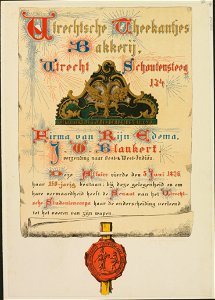 Utrechtsche Theekantjes
Bakkerij,
Utrecht Schoutensteeg
134
Firma van Rijn Edema,
J. W. Blankert.
verzending naar Oost & West-Indiën.
Deze Affaire vierde den 5 Juni 1896
haar 150-jarig bestaan; bij deze gelegenheid en om
hare vermaardheid heeft de Senaat van het Utrecht-
sche Studentencorps haar de onderscheiding verleend
tot het voeren van zijn wapen.